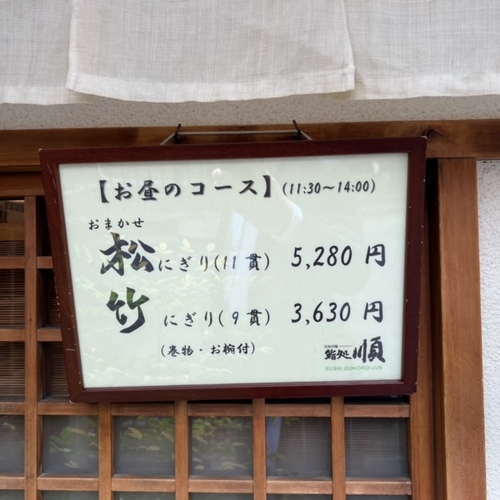 【お昼のコース】(11:30～14:00)
おまかせ
松にぎり(11貫) 5,280 円
竹 にぎり(9貫) 3,630 円
(巻物・お椀付)
鮨処 順
SUSHI DOKORO JUN